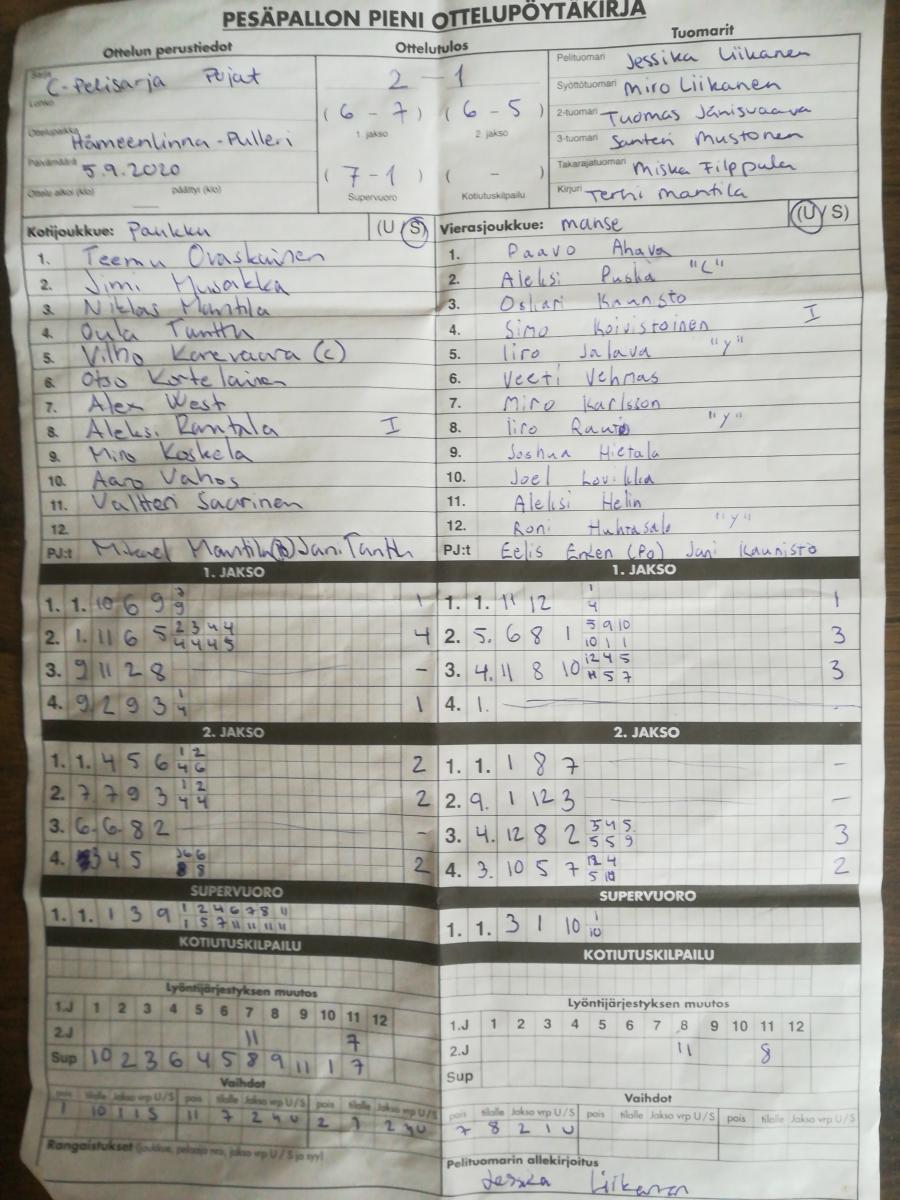 PESÄPALLON PIENI OTTELUPÖYTÄKIRJA
Ottelun perustiedot
Sarja C-Pelisarja Pojat
Lohko
Ottelupaikka Hämeenlinna - Pulleri
Päivämäärä 5.9.2020
Ottelu alkoi (klo) päättyi (klo)
Ottelutulos
2 - 1
(6 - 7) (6 - 5)
1. jakso 2. jakso
(7 - 1) ( - )
Supervuoro Kotiutuskilpailu
Tuomarit
Pelituomari Jessika Liikanen
Syöttötuomari Miro Liikanen
2-tuomari Tuomas Jänisvaara
3-tuomari Santeri Mustonen
Takarajatuomari Miska Filppula
Kirjuri Terhi Mantila
Kotijoukkue: Paukku (U S)
1. Teemu Ovaskainen
2. Jimi Muvakka
3. Niklas Mantila
4. Oula Tanttu
5. Vilho Karevaara (c)
6. Otso Kortelainen
7. Alex West
8. Aleksi Rantala I
9. Miro Koskela
10. Aaro Vahos
11. Valtteri Saarinen
12.
PJ:t Mikael Mantila Jani Tanttu
Vierasjoukkue: manse (U S)
1. Paavo Ahava
2. Aleksi Puska "C"
3. Oskari Kaunisto
4. Simo Koivistoinen I
5. Iiro Jalava "y"
6. Veeti Vehmas
7. Miro Karlsson
8. Iiro Rautio "y"
9. Joshua Hietala
10. Joel Lovikka
11. Aleksi Helin
12. Roni Huhtasalo "y"
PJ:t Eelis Enlen (Po) Jani Kaunisto
1. JAKSO
1. 1. 10 6 9 7 1
9
2. 1. 11 6 5 2 3 4 4 4
4 4 4 5
3. 9 11 2 8 -
4. 9 2 9 3 1 1
4
2. JAKSO
1. 1. 4 5 6 1 2 2
4 6
2. 7 7 9 3 1 2 2
4 4
3. 6. 6. 8 2 -
4. 3 4 5 6 6 2
8 8
SUPERVUORO
1. 1. 1 3 9 1 2 4 6 7 8 11
1 5 7 11 11 11 11
KOTIUTUSKILPAILU
Lyöntijärjestyksen muutos
1.J 1 2 3 4 5 6 7 8 9 10 11 12
2.J 11 7
Sup 10 2 3 6 4 5 8 9 11 1 7
Vaihdot
pois tilalle Jakso vrp U/S pois tilalle Jakso vrp U/S pois tilalle Jakso vrp U/S
1 10 1 1 S 11 7 2 4 U 2 1 2 4 U
Rangaistukset (joukkue, pelaaja nro, jakso vrp U/S ja syy)
1. JAKSO
1. 1. 11 12 1 1
4
2. 5. 6 8 1 5 9 10 3
10 1 1
3. 4. 11 8 10 12 4 5 3
11 5 7
4. 1. -
2. JAKSO
1. 1. 1 8 7 -
2. 9. 1 12 3 -
3. 4. 12 8 2 3 4 5 3
5 5 9
4. 3. 10 5 7 12 4 2
5 10
SUPERVUORO
1. 1. 3 1 10 1
10
KOTIUTUSKILPAILU
Lyöntijärjestyksen muutos
1.J 1 2 3 4 5 6 7 8 9 10 11 12
2.J 11 8
Sup
Vaihdot
pois tilalle Jakso vrp U/S pois tilalle Jakso vrp U/S pois tilalle Jakso vrp U/S
7 8 2 1 U
Pelituomarin allekirjoitus
Jessika Liikanen